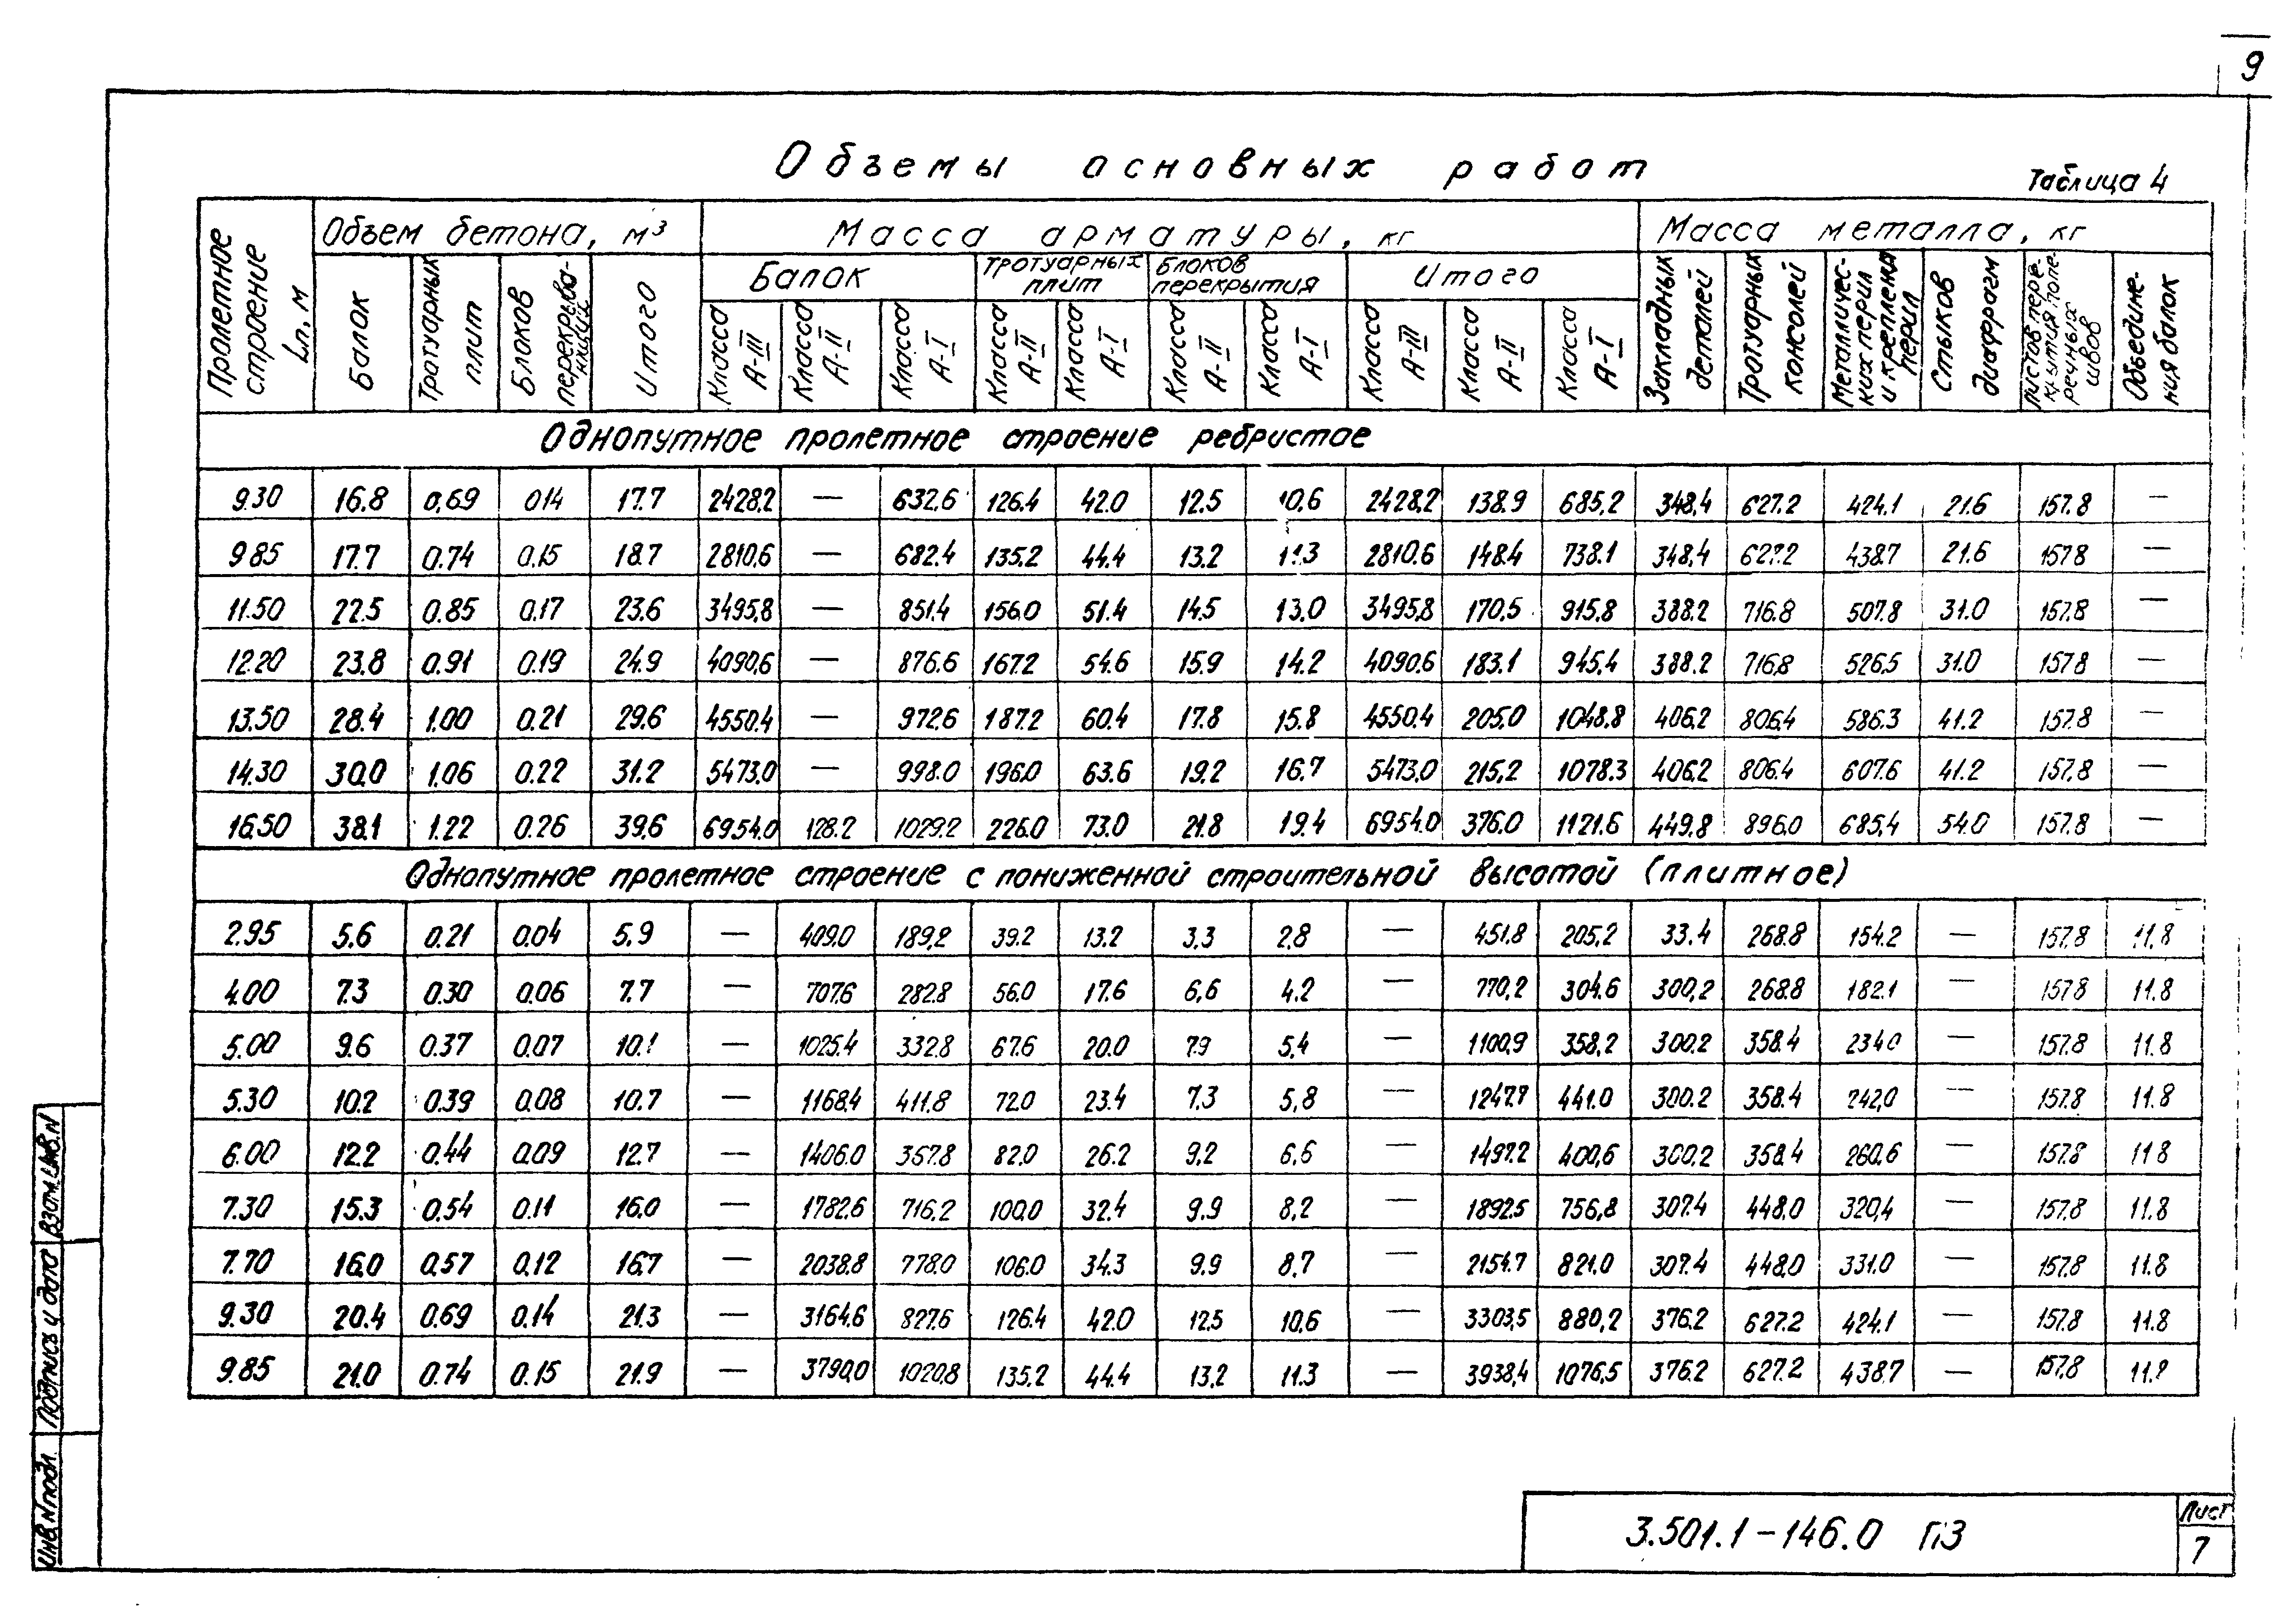 9
Объемы основных работ
Таблица 4
Пролетное строение Lп, м
Объем бетона, м³
Масса арматуры, кг
Масса металла, кг
Балок
Тротуарных плит
Блоков перекрывающих
Итого
Балок
Тротуарных плит
Блоков перекрытия
Итого
Класса А-III
Класса А-II
Класса А-I
Класса А-II
Класса А-I
Класса А-II
Класса А-I
Класса А-III
Класса А-II
Класса А-I
Закладных деталей
Тротуарных консолей
Металлических перил и крепления перил
Стыков диафрагм
Листов перекрытия поперечных швов
Объединения балок
Однопутное пролетное строение ребристое
9.30 16.8 0,69 0.14 17.7 2428,2 — 632.6 126.4 42.0 12.5 10,6 2428,2 138.9 685,2 348,4 627.2 424.1 21.6 157.8 —
9.85 17.7 0.74 0.15 18.7 2810,6 — 682.4 135.2 44.4 13.2 11.3 2810.6 148.4 738.1 348,4 627.2 438.7 21.6 157.8 —
11.50 22.5 0.85 0.17 23.6 3495,8 — 851.4 156.0 51.4 14.5 13,0 3495,8 170,5 915.8 388.2 716.8 507.8 31.0 157.8 —
12.20 23.8 0.91 0.19 24.9 4090,6 — 876.6 167.2 54.6 15.9 14.2 4090.6 183.1 945,4 388.2 716,8 526,5 31.0 157.8 —
13.50 28.4 1.00 0.21 29.6 4550.4 — 972.6 187.2 60.4 17.8 15.8 4550.4 205.0 1048.8 406.2 806.4 586.3 41.2 157.8 —
14.30 30.0 1.06 0.22 31.2 5473.0 — 998.0 196.0 63.6 19.2 16.7 5473.0 215,2 1078.3 406,2 806.4 607.6 41.2 157.8 —
16.50 38.1 1.22 0.26 39.6 6954.0 128.2 1029.2 226.0 73.0 21.8 19.4 6954.0 376.0 1121.6 449,8 896.0 685,4 54.0 157.8 —
Однопутное пролетное строение с пониженной строительной высотой (плитное)
2.95 5.6 0.21 0.04 5.9 — 409.0 189,2 39.2 13.2 3.3 2,8 — 451.8 205,2 33.4 268.8 154.2 — 157.8 11.8
4.00 7.3 0.30 0.06 7.7 — 707.6 282.8 56.0 17.6 6,6 4.2 — 770,2 304.6 300,2 268.8 182.1 — 157.8 11.8
5.00 9.6 0.37 0.07 10.1 — 1025.4 332.8 67.6 20.0 7.9 5,4 — 1100,9 358,2 300.2 358.4 234.0 — 157.8 11.8
5.30 10.2 0.39 0.08 10.7 — 1168.4 411.8 72.0 23.4 7.3 5,8 — 1247.7 441.0 300.2 358.4 242,0 — 157.8 11.8
6.00 12.2 0.44 0.09 12.7 — 1406.0 367.8 82.0 26.2 9.2 6,6 — 1497.2 400,6 300,2 358.4 260,6 — 157.8 11.8
7.30 15.3 0,54 0.11 16.0 — 1782.6 716.2 100.0 32.4 9.9 8,2 — 1892.5 756,8 307.4 448.0 320,4 — 157.8 11.8
7.70 16.0 0,57 0.12 16,7 — 2038.8 778.0 106.0 34.3 9.9 8,7 — 2154.7 821.0 307.4 448.0 331.0 — 157.8 11.8
9.30 20.4 0.69 0.14 21.3 — 3164.6 827.6 126.4 42.0 12.5 10,6 — 3303,5 880,2 376.2 627.2 424.1 — 157.8 11.8
9.85 21.0 0.74 0.15 21.9 — 3790,0 1020,8 135.2 44.4 13,2 11.3 — 3938,4 1076,5 376.2 627.2 438.7 — 157,8 11.8
Взам. инв. N
Подпись и дата
Инв. N подл.
3.501.1-146.0 ПЗ
Лист
7